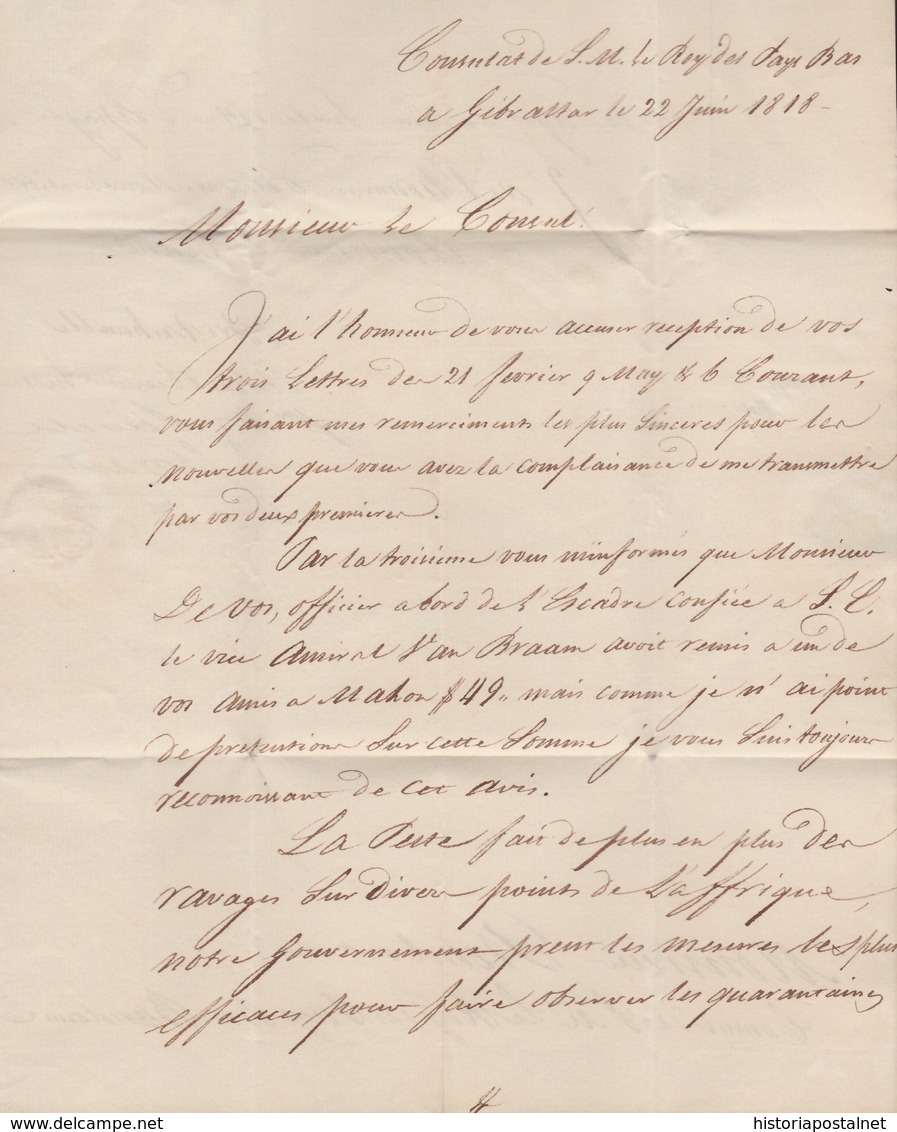 Consulat de S. M. le Roy des Pays Bas
a Gibraltar le 22 Juin 1818 -
Monsieur Le Consul!
J'ai l'honneur de vous accuser reception de vos
trois Lettres des 21 fevrier 9 May & 6 Courant,
vous faisant mes remerciments les plus Sinceres pour les
nouvelles que vous avez la complaisance de me transmettre
par vos deux premieres.
Par la troisieme vous m'informés que Monsieur
De Vos, officier a bord de l'Escadre confiée a S. E.
le vice Amiral Van Braam avoit remis a un de
vos Amis a Mahon $ 49,, mais comme je n'ai point
de pretentions Sur cette Somme je vous Suis toujours
reconnoissant de cet avis.
La Peste fait de plus en plus des
ravages Sur divers points de L'affrique,
notre Gouvernement prent les mesures les plus
efficaces pour faire observer les quarantaines
delcampe.net
historiapostalnet